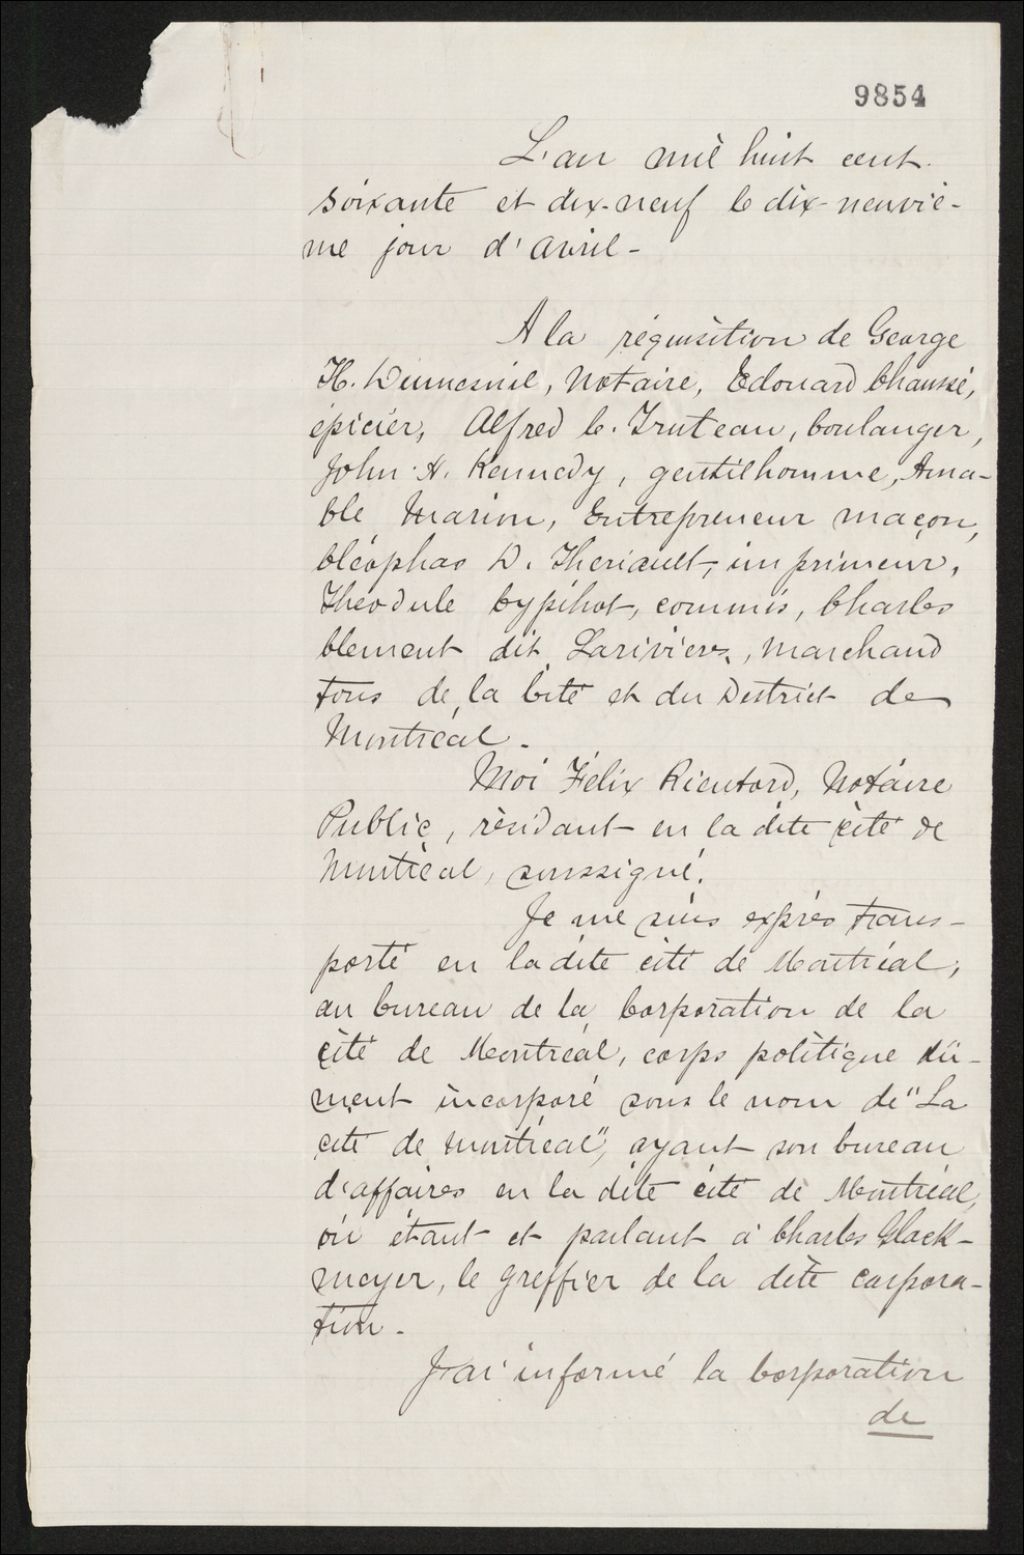 9854
L'an mil huit cent
soixante et dix-neuf le dix-neuviè-
me jour d'avril -
A la réquisition de George
H. Dumesnil, Notaire, Edouard Chaussé,
épicier, Alfred C. Truteau, boulanger,
John H. Kennedy, gentilhomme, Ama-
ble Marion, Entrepreneur maçon,
Cléophas D. Theriault, imprimeur,
Théodule Cypihot, commis, Charles
Clement dit Lariviere, Marchand
tous de la Cité et du District de
Montréal -
Moi Félix Rientord, Notaire
Public, résidant en la dite cité de
Montréal, soussigné.
Je me suis exprès trans-
porté en la dite cité de Montréal,
au bureau de la Corporation de la
cité de Montréal, corps politique dû-
ment incorporé sous le nom de "La
cité de Montréal", ayant son bureau
d'affaires en la dite cité de Montréal,
où étant et parlant à Charles Glack-
meyer, le Greffier de la dite corpora-
tion -
J'ai informé la Corporation
de